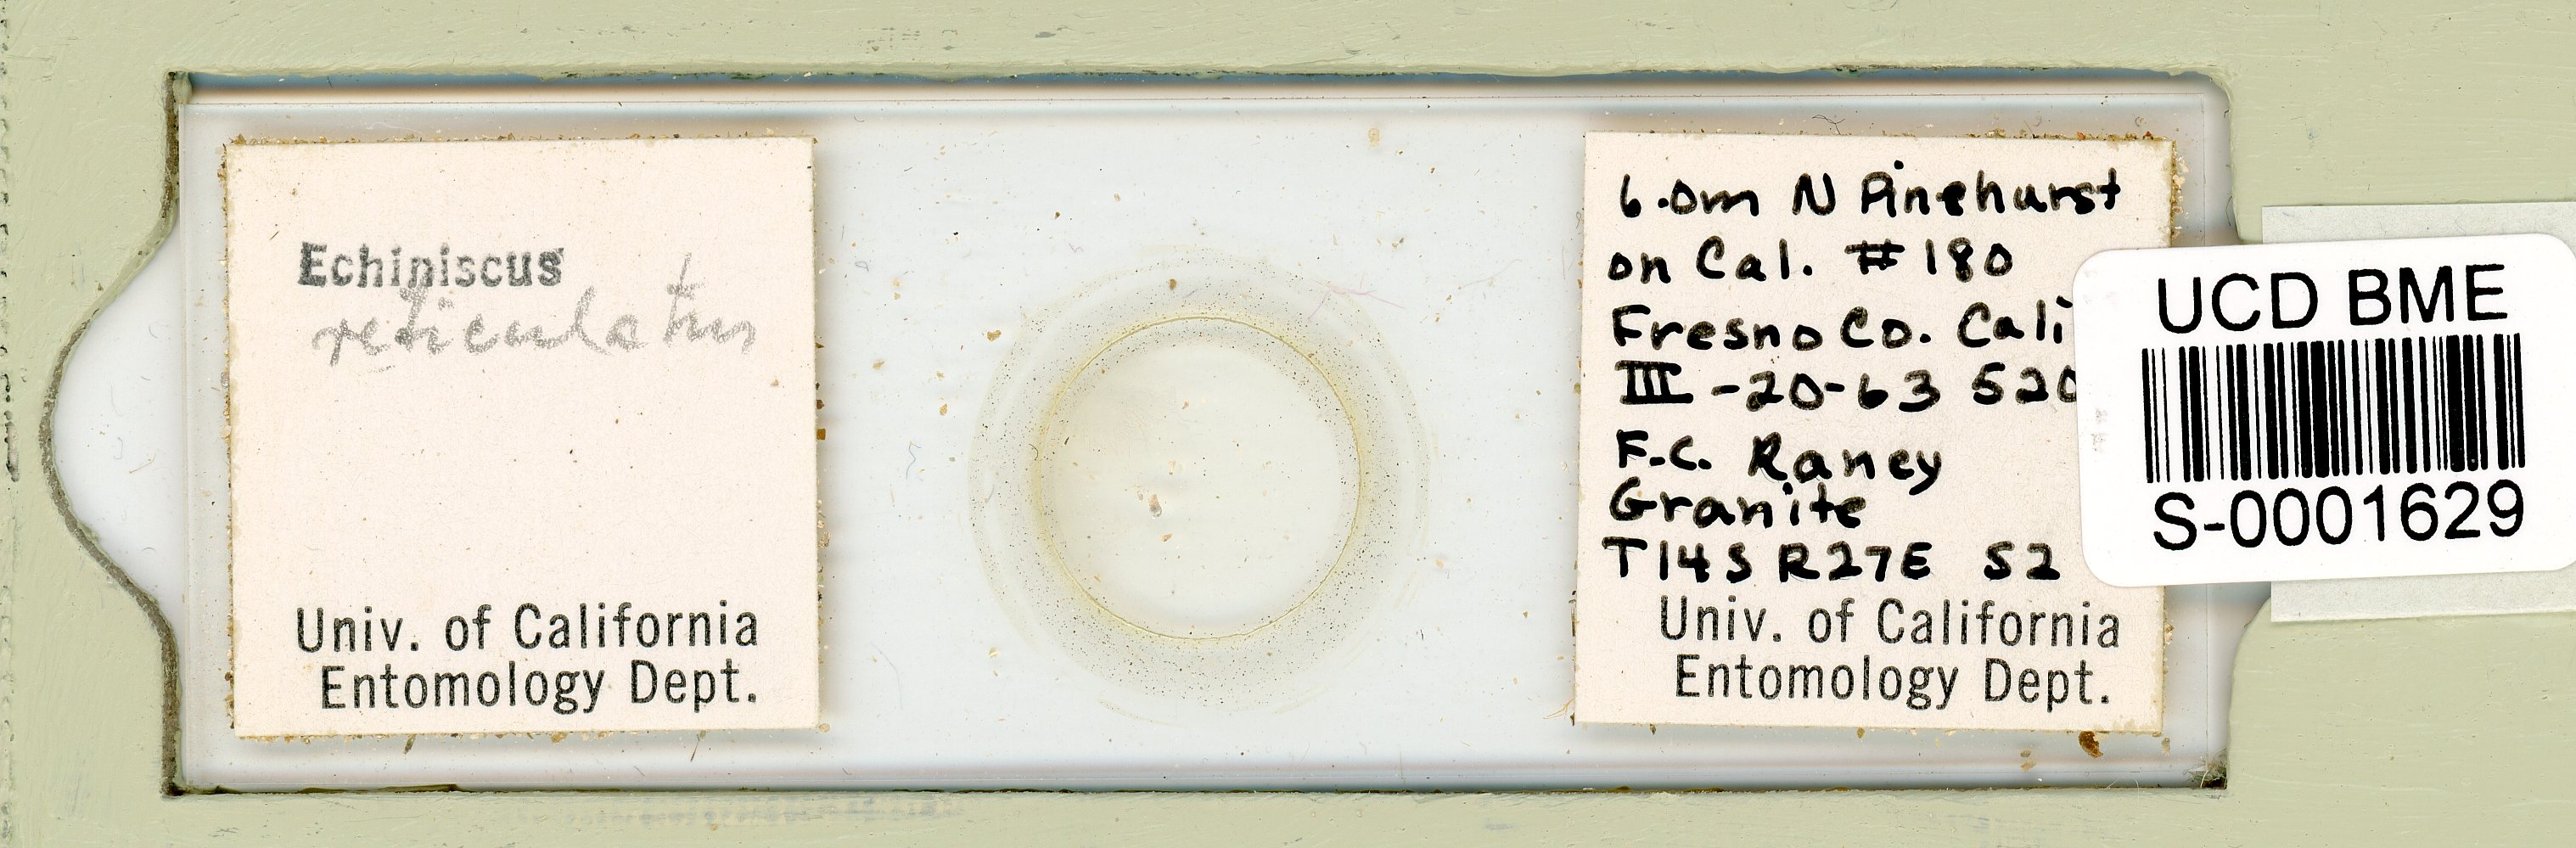 Echiniscus
reticulatus
Univ. of California
Entomology Dept.
6.0m N Pinehurst
on Cal. #180
Fresno Co. Cali
III-20-63 520
F.C. Raney
Granite
T14S R27E S2
Univ. of California
Entomology Dept.
UCD BME
S-0001629